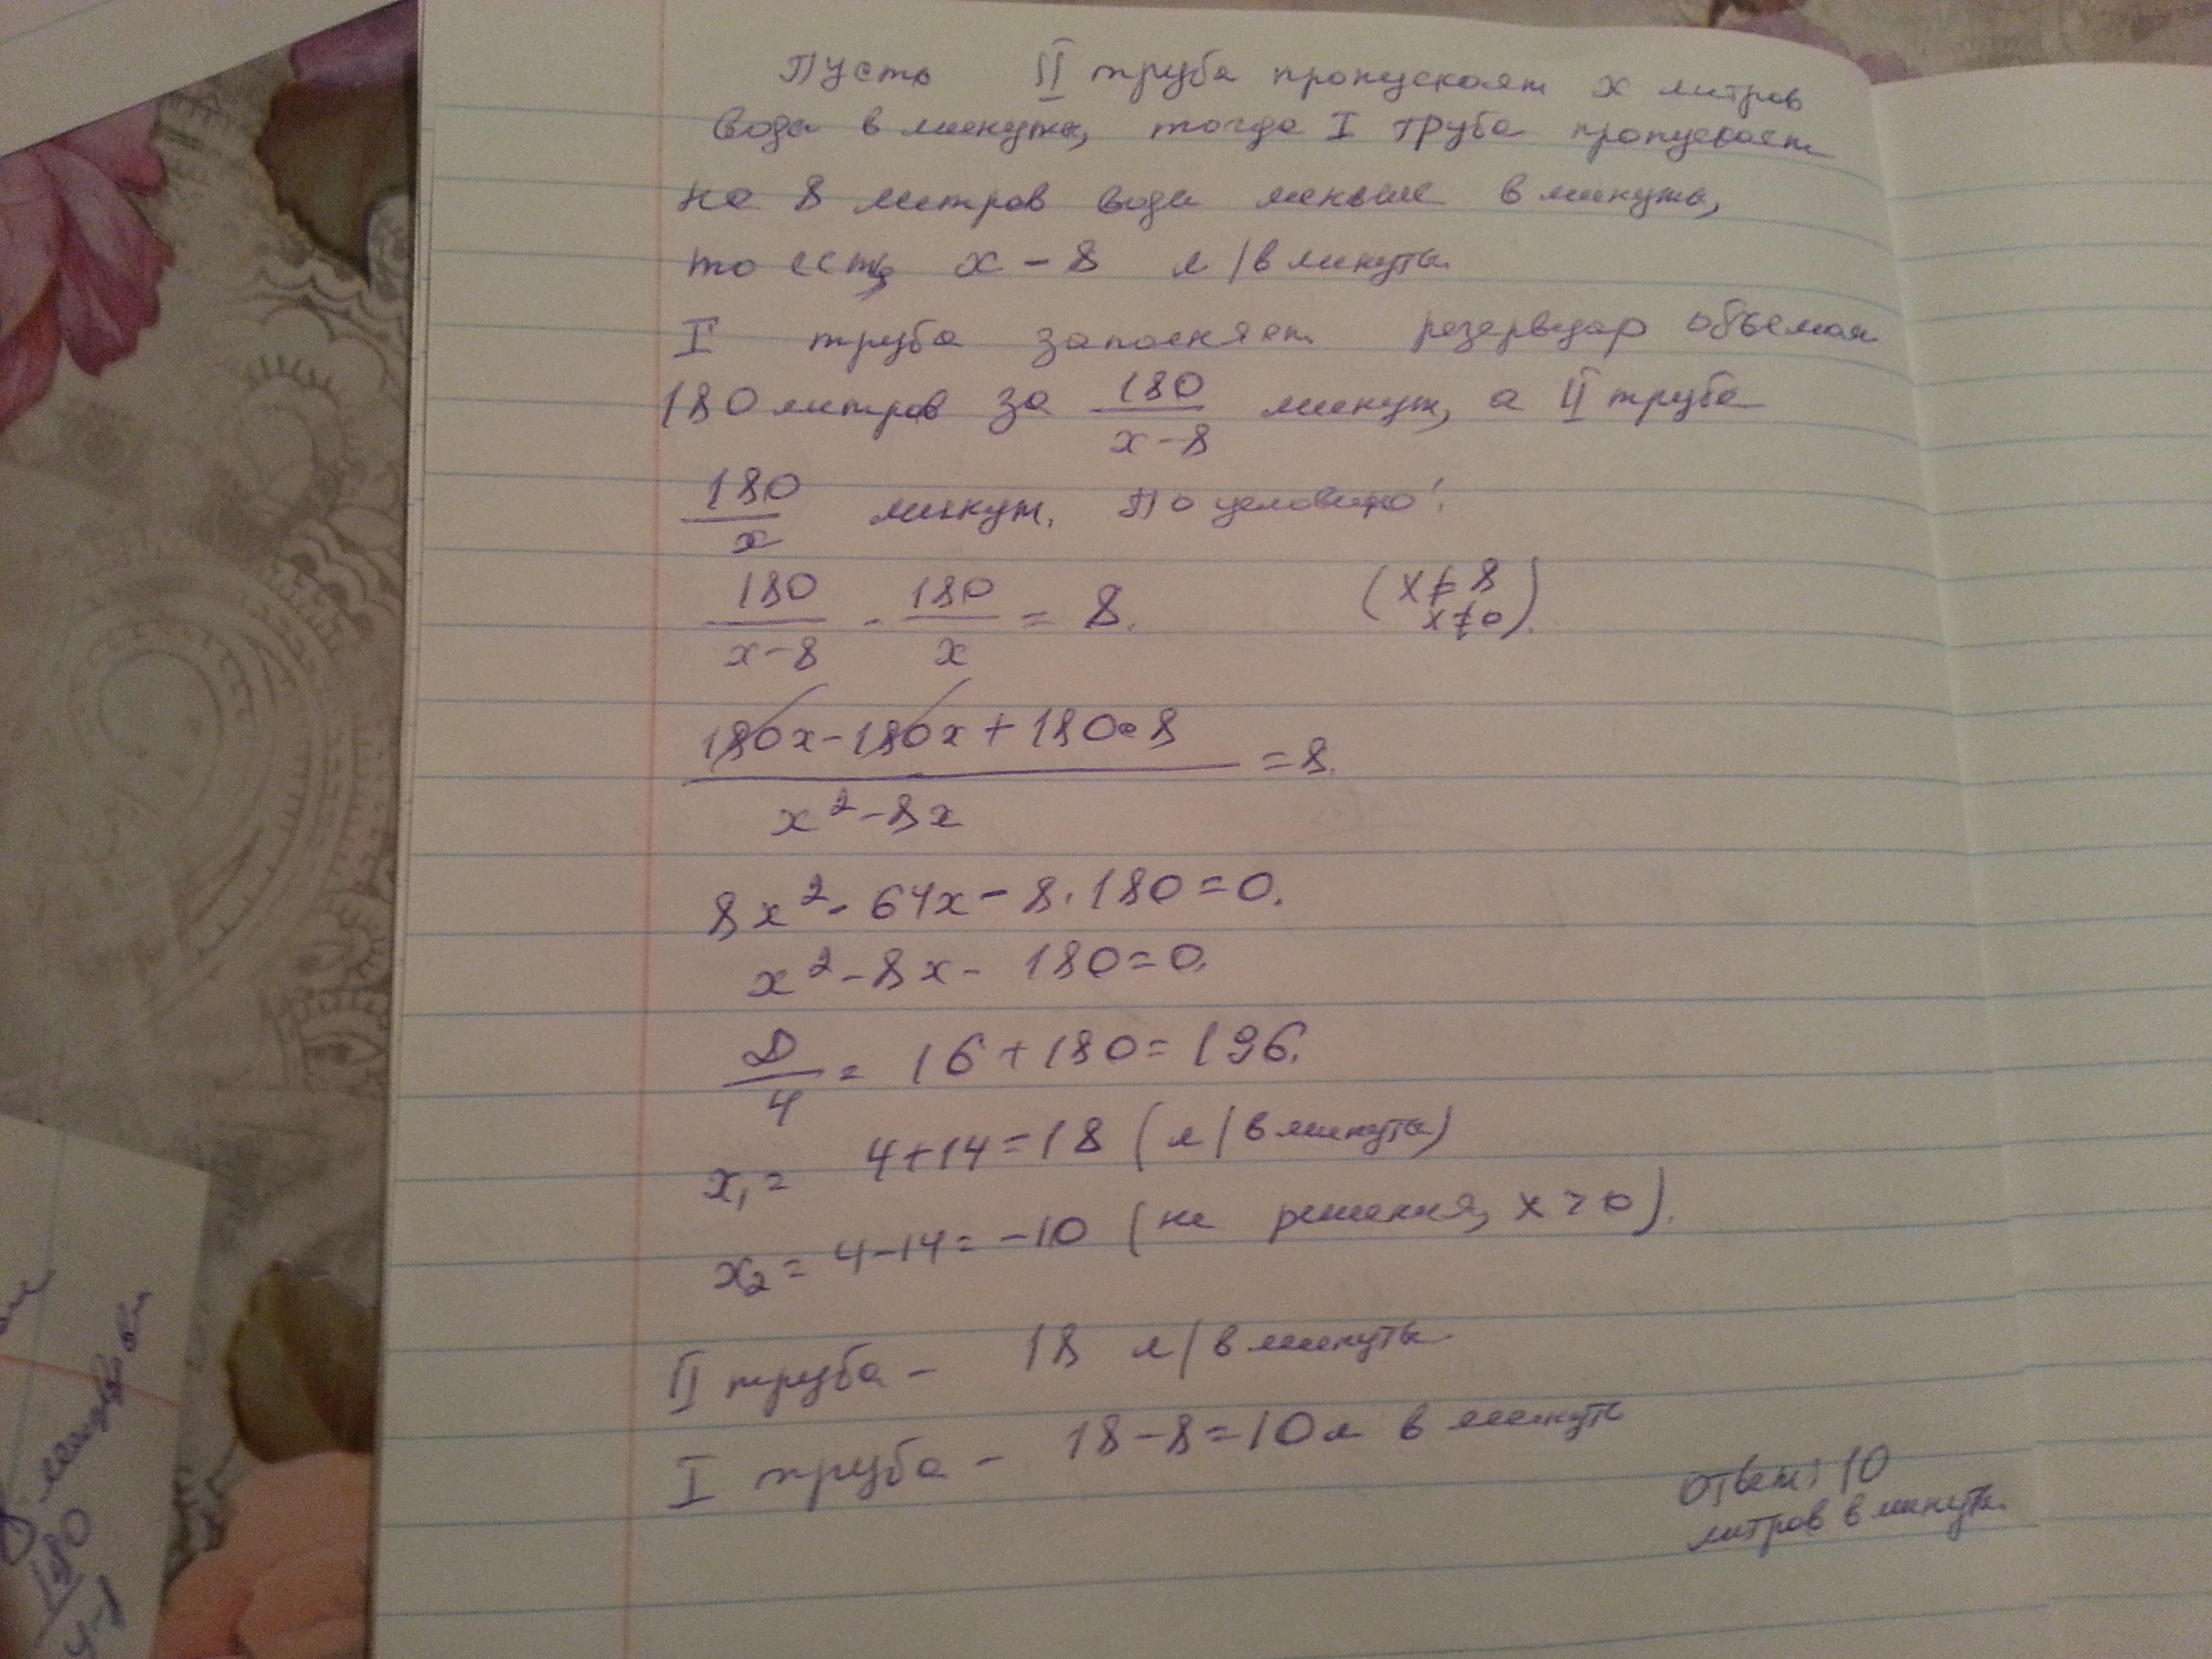 Пусть II труба пропускает x литров
воды в минуту, тогда I труба пропускает
на 8 литров воды меньше в минуту,
то есть x - 8 л/в минуты.
I труба заполняет резервуар объемом
180 литров за 180/(x-8) минут, а II труба
180/x минут. По условию:
180/(x-8) - 180/x = 8. (x ≠ 8
x ≠ 0).
(180x - 180x + 180•8)/(x² - 8x) = 8.
8x² - 64x - 8·180 = 0.
x² - 8x - 180 = 0.
D/4 = 16 + 180 = 196.
x₁ = 4 + 14 = 18 (л/в минуты)
x₂ = 4 - 14 = -10 (не решения, x > 0).
II труба - 18 л/в минуты.
I труба - 18 - 8 = 10 л в минуты
Ответ: 10
литров в минуты.
180